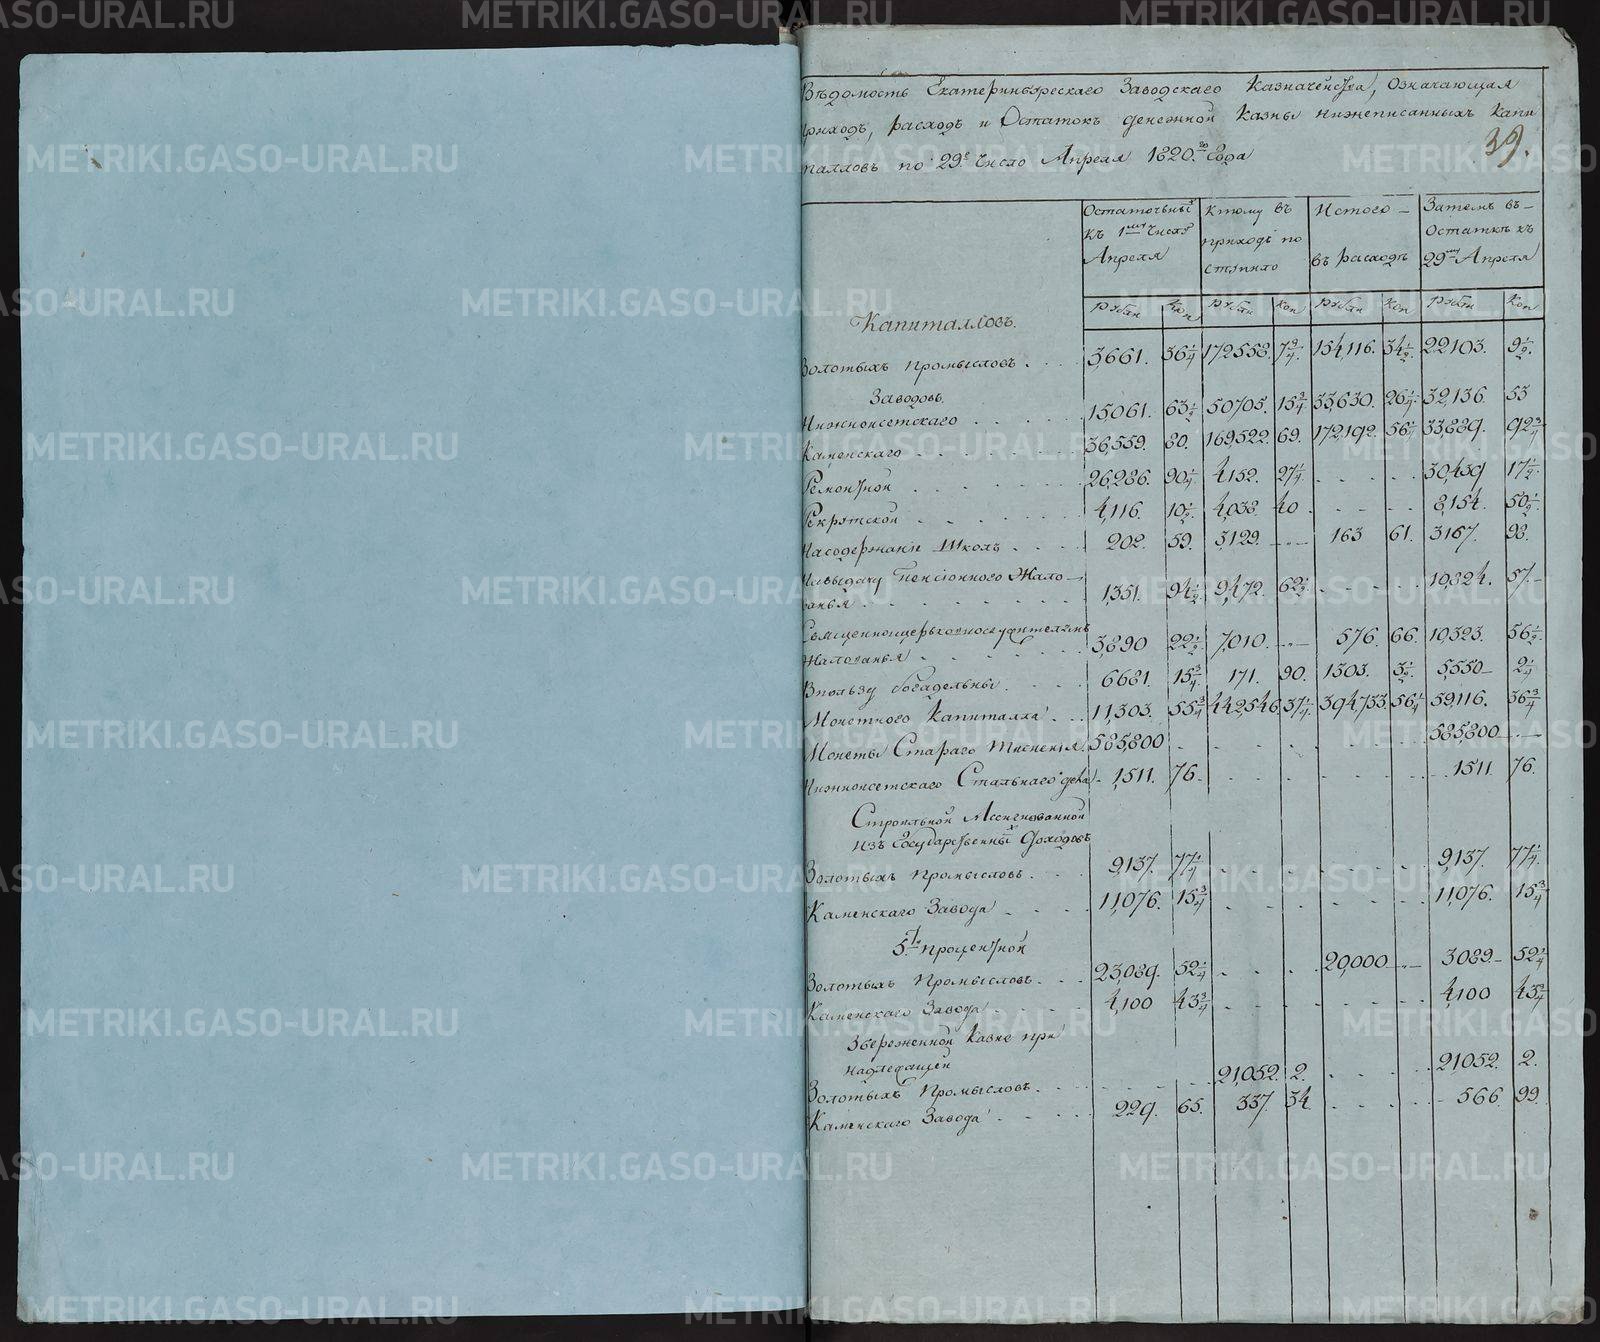 Вѣдомость Екатеринбургскаго Заводскаго Казначейства, Означающая
приходъ, расходъ и Остатокъ денежной Казны нижеписанныхъ Капи
талловъ по 29е Число Апреля 1820го года
39.
Капиталловъ.
Остаточныхъ къ 1му Числу Апреля
Ктому въ приходѣ по ступило
Истого въ расходъ
Затемъ въ Остаткѣ къ 29му Апреля
Рубли Коп Рубли Коп Рубли Коп Рубли Коп
Золотыхъ промысловъ . 3,661. 36 1/4 172558. 7 3/4. 154,116. 34 1/2. 22103. 9 1/2.
Заводовъ.
Нижноисетскаго 15,061. 63 1/2. 50705. 15 3/4 33,630. 26 1/4. 32,136. 53
Каменскаго 36,559. 80. 169,522. 69. 172,192. 56 1/4 33,889. 92 3/4
Ремонтной 26,286. 90 1/4 4,152. 27 1/4 30,439 17 1/2.
Рекрутской 4,116. 10 1/2. 4,038. 40 8,154. 50 1/2.
На содержание Школъ 202. 59. 3,129. — 163 61. 3167. 98.
На выдачу Пенсіонного Жало-
ванья 1,351. 94 1/2 9,472. 62 1/2 10,824. 57.
Священноцерковнослужителямъ
Жалованья 3,890 22 1/2 7,010. — 576. 66. 10323. 56 1/2.
В пользу богадельны 6681. 15 3/4 171. 90. 1303. 3 1/2. 5,550 2 1/4
Монетного Капиталла 11,303. 55 3/4 442,546. 37 1/4. 394,733. 56 1/4 59,116. 36 3/4
Монеты Стараго тиснения. 585,800 585,800
Нижноисетскаго Стальнаго дела 1,511. 76. 1511 76.
Строильной Ассигнованной
изъ Государственныхъ Доходовъ
Золотыхъ Промысловъ 9,137. 77 1/4 9,137. 77 1/4.
Каменскаго Завода 11,076. 15 3/4 11,076. 15 3/4
5ти процентной
Золотыхъ Промысловъ 23,089. 52 1/4 20,000 3089. 52 1/4
Каменскаго Завода 4,100 43 3/4 4,100 43 3/4
Збереженной Казне при
надлежащей
Золотыхъ Промысловъ 21,052. 2. 21052. 2.
Каменскаго Завода 229. 65. 337. 34 566 99.
METRIKI.GASO-URAL.RU